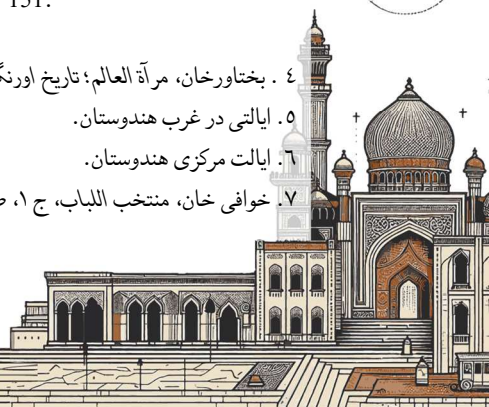 151.
٤ . بختاورخان، مرآة العالم؛ تاریخ
٥. ایالتی در غرب هندوستان.
٦. ایالت مرکزی هندوستان.
٧. خوافی خان، منتخب اللباب، ج ١،